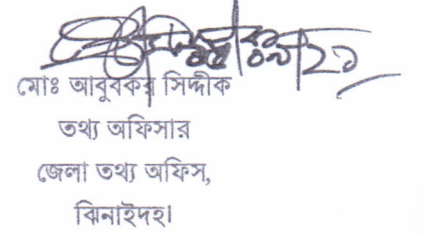 মোঃ আবুবকর সিদ্দীক
তথ্য অফিসার
জেলা তথ্য অফিস,
ঝিনাইদহ।